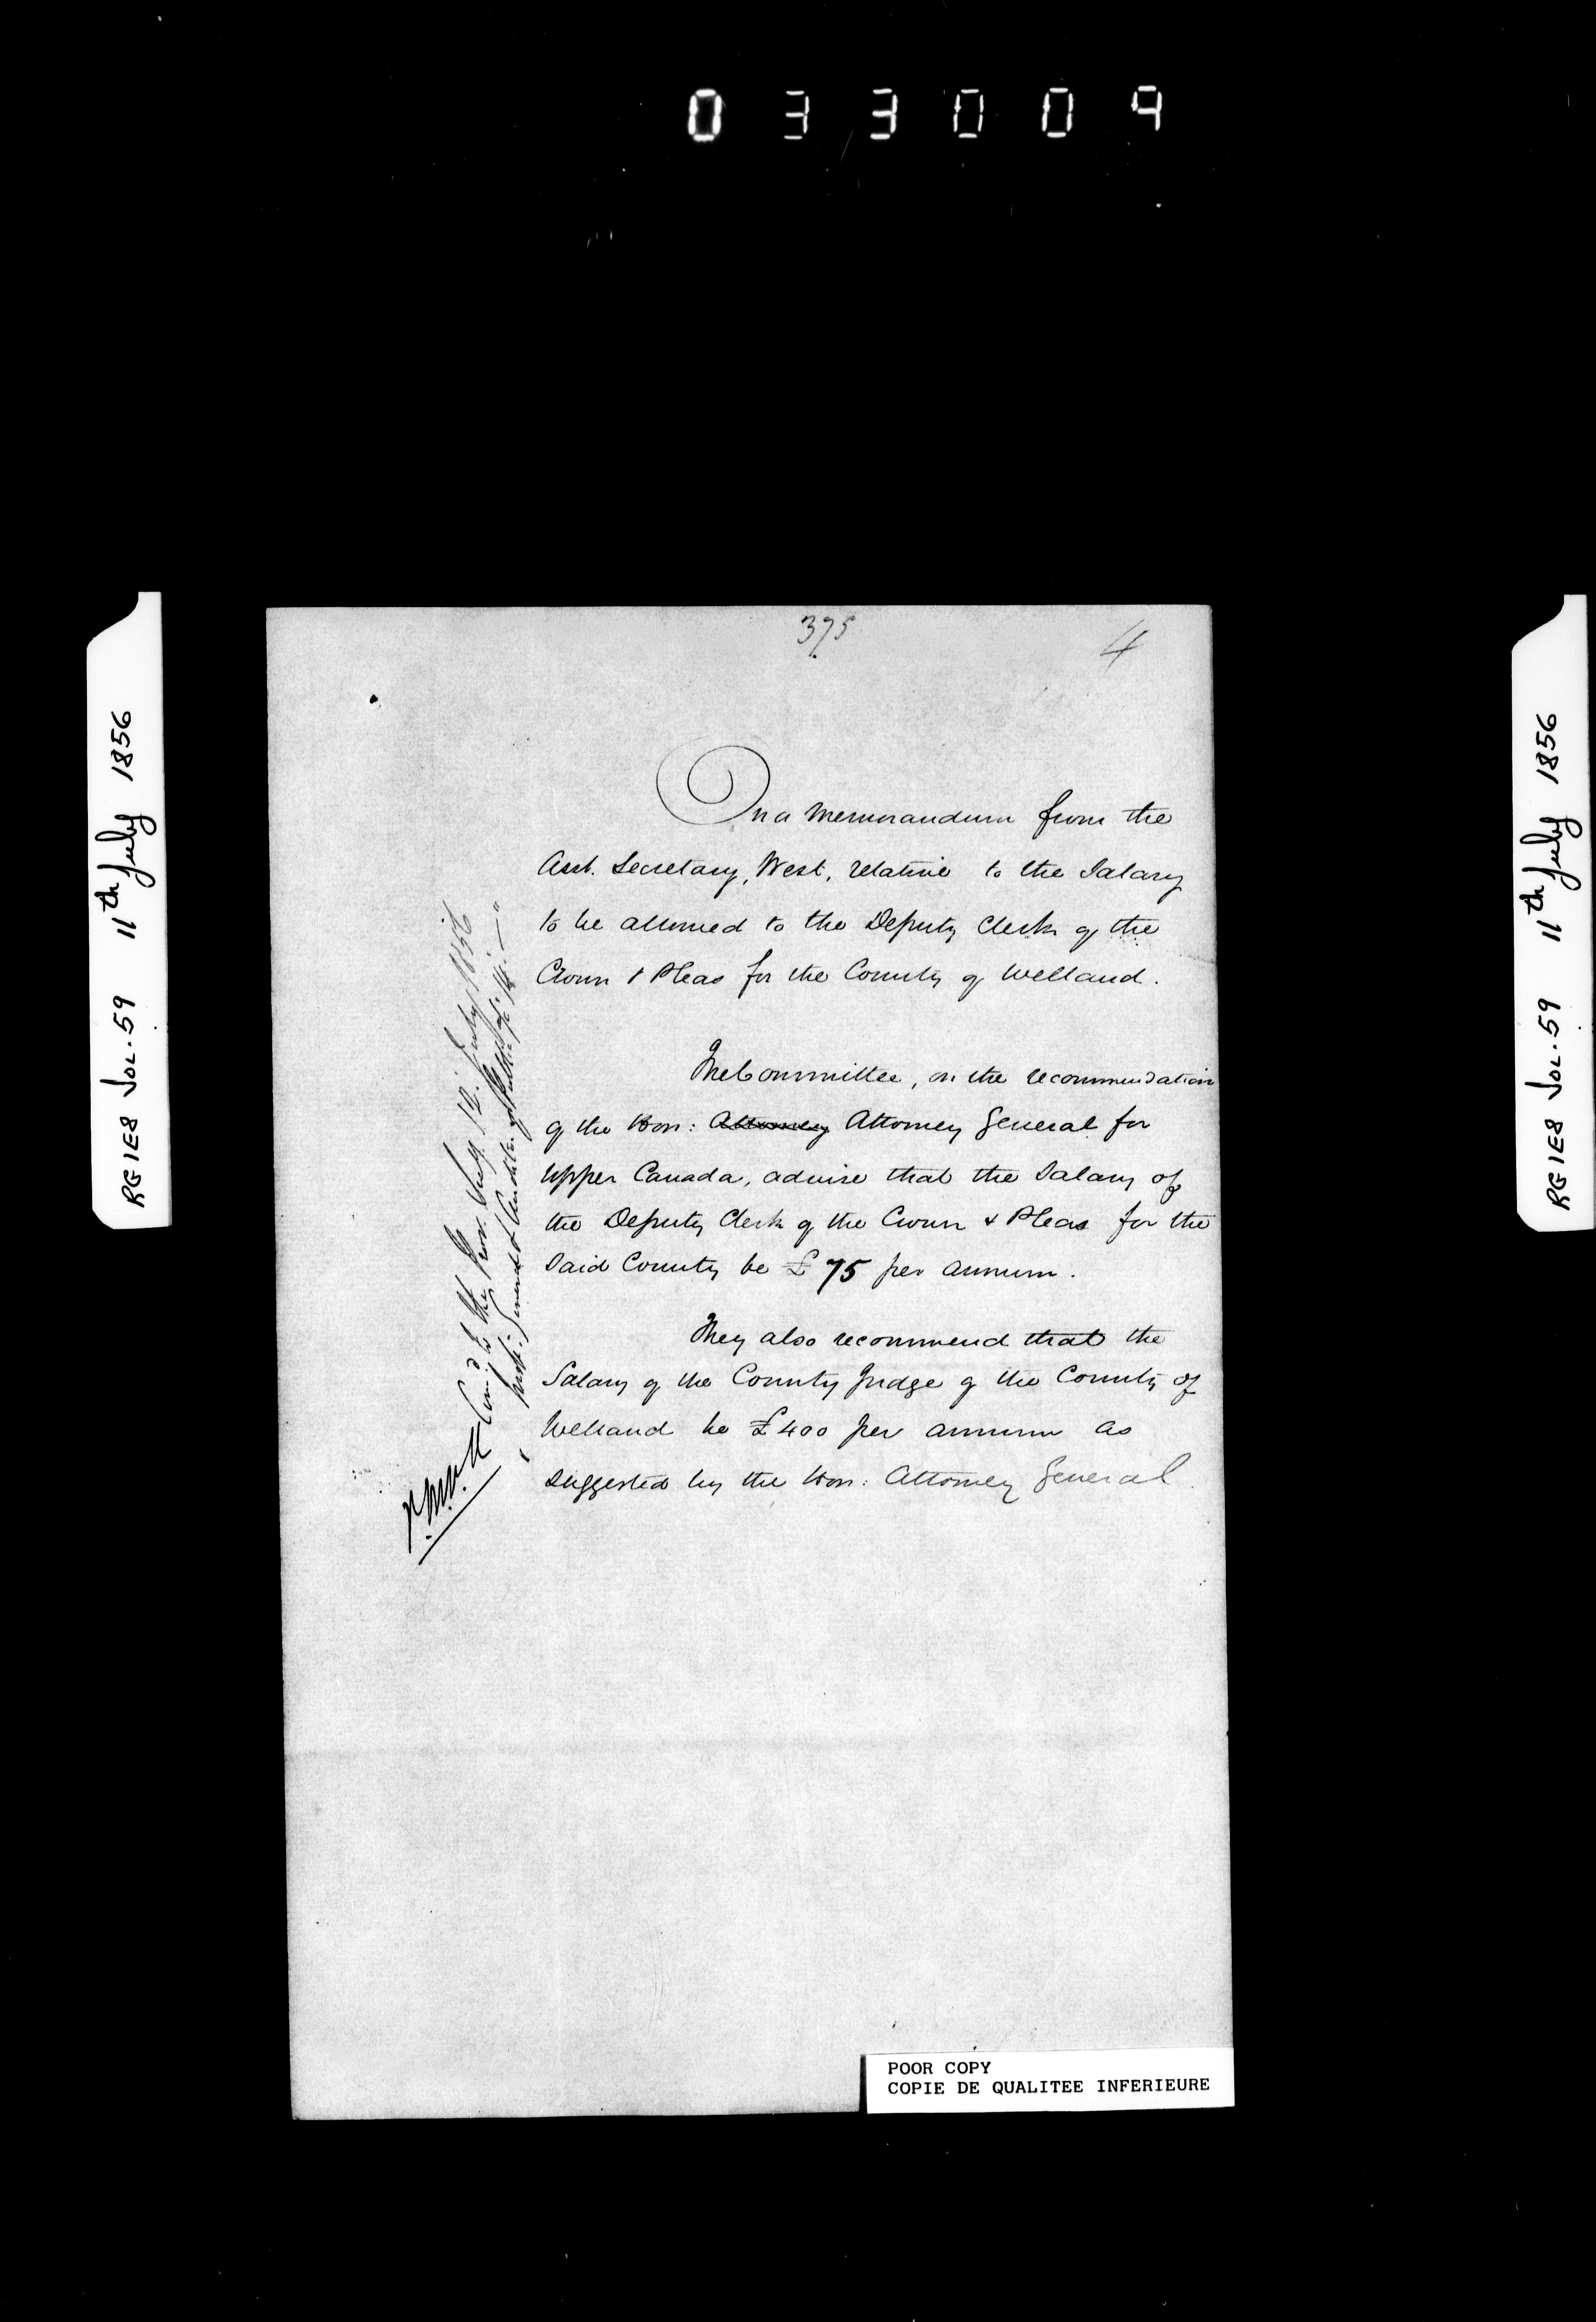 033009
RG1E8 VOL.59 11th July 1856
375
4
On a Memorandum from the
Asst. Secretary, West, relative to the Salary
to be allowed to the Deputy Clerk of the
Crown & Pleas for the County of Welland.
The Committee, on the recommendation
of the Hon: Attorney Attorney General for
Upper Canada, advise that the Salary of
the Deputy Clerk of the Crown & Pleas for the
Said County be £75 per annum.
They also recommend that the
Salary of the County Judge of the County of
Welland be £400 per annum as
Suggested by the Hon: Attorney General
to the Prov. Secy. 12. July 1856
RG1E8 VOL.59 11th July 1856
POOR COPY
COPIE DE QUALITEE INFERIEURE